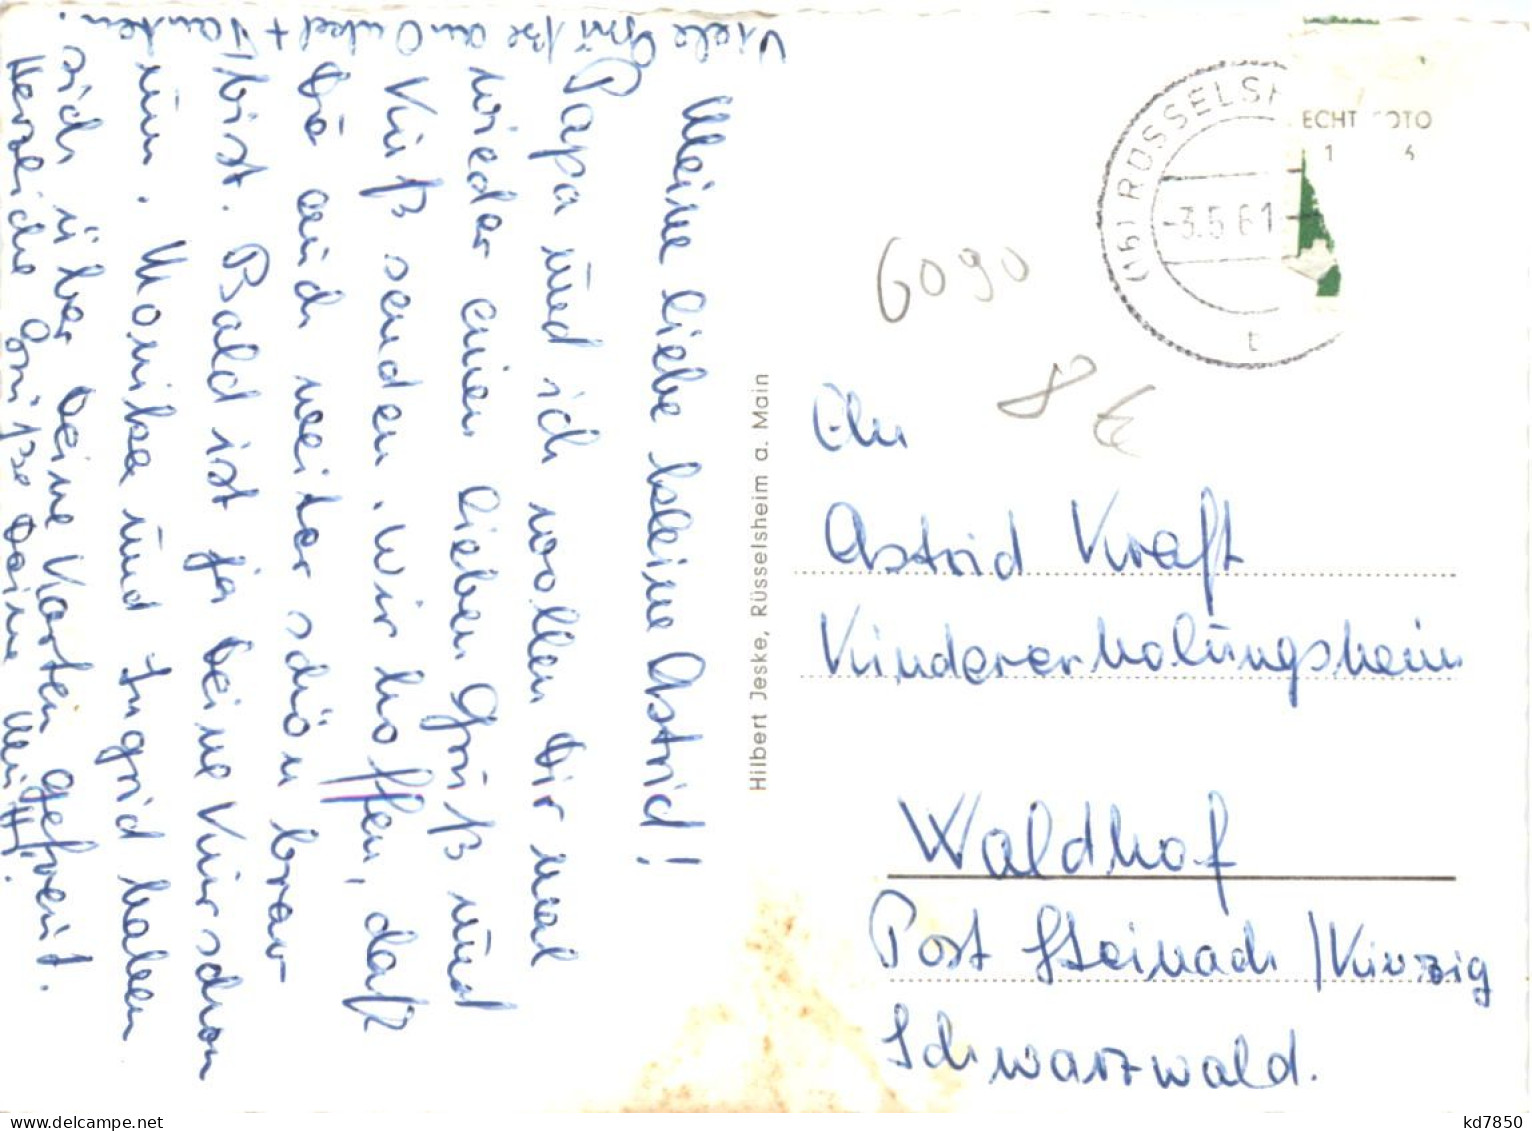 Meine liebe kleine Astrid!
Papa und ich wollen Dir mal
wieder einen lieben Gruß und
Kuß senden. Wir hoffen, daß
Du auch weiter schön brav
bist. Bald ist ja Deine Kur schon
um. Monika und Ingrid haben
sich über Deine Karten gefreut.
Herzliche Grüße Deine Mutti.
Viele Grüße an Onkel + Tanten.
Hilbert Jeske, Rüsselsheim a. Main
(16) RÜSSELSH
-3.5.61
t
ECHT FOTO
1 4
6090
8 €
An
Astrid Kraft
Kindererholungsheim
Waldhof
Post Steinach / Kinzig
Schwarzwald.
kd7850